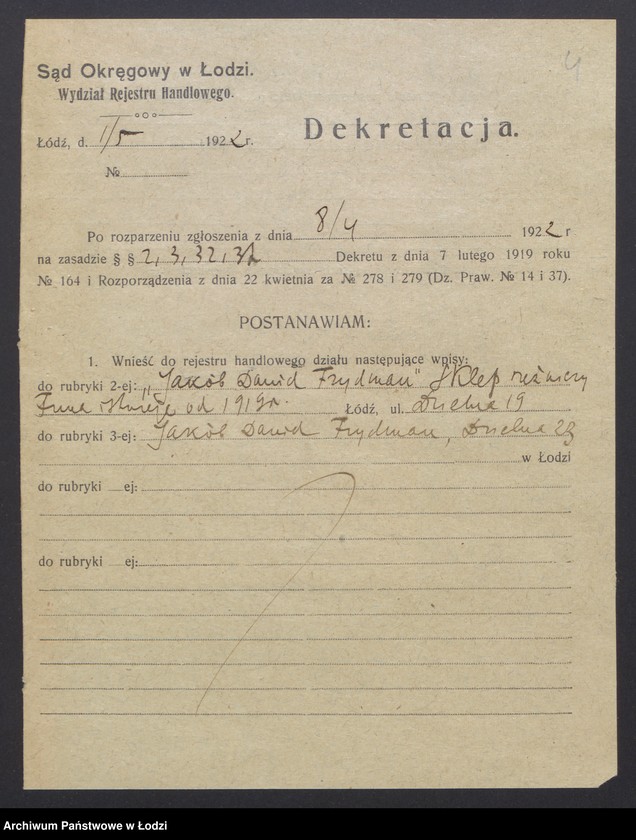 4
Sąd Okręgowy w Łodzi.
Wydział Rejestru Handlowego.
Dekretacja.
Łódź, d. 1/5 1922 r.
№
Po rozparzeniu zgłoszenia z dnia 8/4 1922 r
na zasadzie § § 2, 3, 32, 37 Dekretu z dnia 7 lutego 1919 roku
№ 164 i Rozporządzenia z dnia 22 kwietnia za № 278 i 279 (Dz. Praw. № 14 i 37).
POSTANAWIAM:
1. Wnieść do rejestru handlowego działu następujące wpisy:
do rubryki 2-ej: „Jakób Dawid Frydman" Sklep rzeźniczy
Firma istnieje od 1919 r. Łódź, ul. Dzielna 19
do rubryki 3-ej: Jakób Dawid Frydman, Dzielna
w Łodzi
do rubryki ej:
do rubryki ej:
Archiwum Państwowe w Łodzi